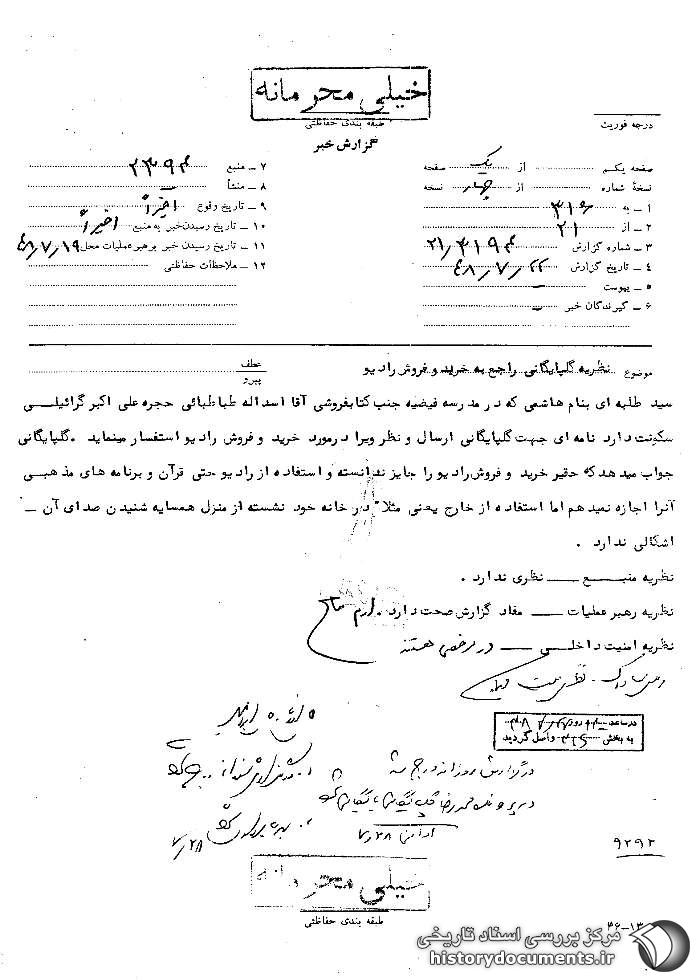 خیلی محرمانه
طبقه بندی حفاظتی
درجه فوریت
گزارش خبر
صفحه یکم از یک صفحه
نسخهٔ شماره از چهار نسخه
۱ ـ به ۳۱۶
۲ ـ از ۲۱
۳ ـ شماره گزارش
۴ ـ تاریخ گزارش ۴۸٫۷٫۲۲
۵ ـ پیوست
۶ ـ گیرندگان خبر
۷ ـ منبع
۸ ـ منشأ
۹ ـ تاریخ وقوع اخیراً
۱۰ ـ تاریخ رسیدن خبر به منبع اخیراً
۱۱ ـ تاریخ رسیدن خبر به رهبر عملیات محل ۴۸٫۷٫۱۹
۱۲ ـ ملاحظات حفاظتی
موضوع نظریه گلپایگانی راجع به خرید و فروش رادیو
عطف
پیرو
سید طلبه ای بنام هاشمی که در مدرسه فیضیه جنب کتابفروشی آقا اسداله طباطبائی حجره علی اکبر گرائیلی
سکونت دارد نامه ای جهت گلپایگانی ارسال و نظر ویرا درمورد خرید و فروش رادیو استفسار مینماید . گلپایگانی
جواب میدهد که حقیر خرید و فروش رادیو را جایز ندانسته و استفاده از رادیو حتی قرآن و برنامه های مذهبی
آنرا اجازه نمیدهم اما استفاده از خارج یعنی مثلا" در خانه خود نشسته از منزل همسایه شنیدن صدای آن ـ
اشکالی ندارد .
نظریه منبع ـــ نظری ندارد .
نظریه رهبر عملیات ـــ مفاد گزارش صحت دارد .
نظریه امنیت داخلی ـــ در مرخصی هستند
در ساعت
به بخش ۳۱۶ واصل گردید
در گزارش روزانه درج شد
در پرونده محمدرضا گلپایگانی بایگانی شود
۷٫۲۸
۷٫۲۸
۹۲۹۲
خیلی محرمانه
طبقه بندی حفاظتی
۳۶-۱۳
مرکز بررسی اسناد تاریخی
historydocuments.ir